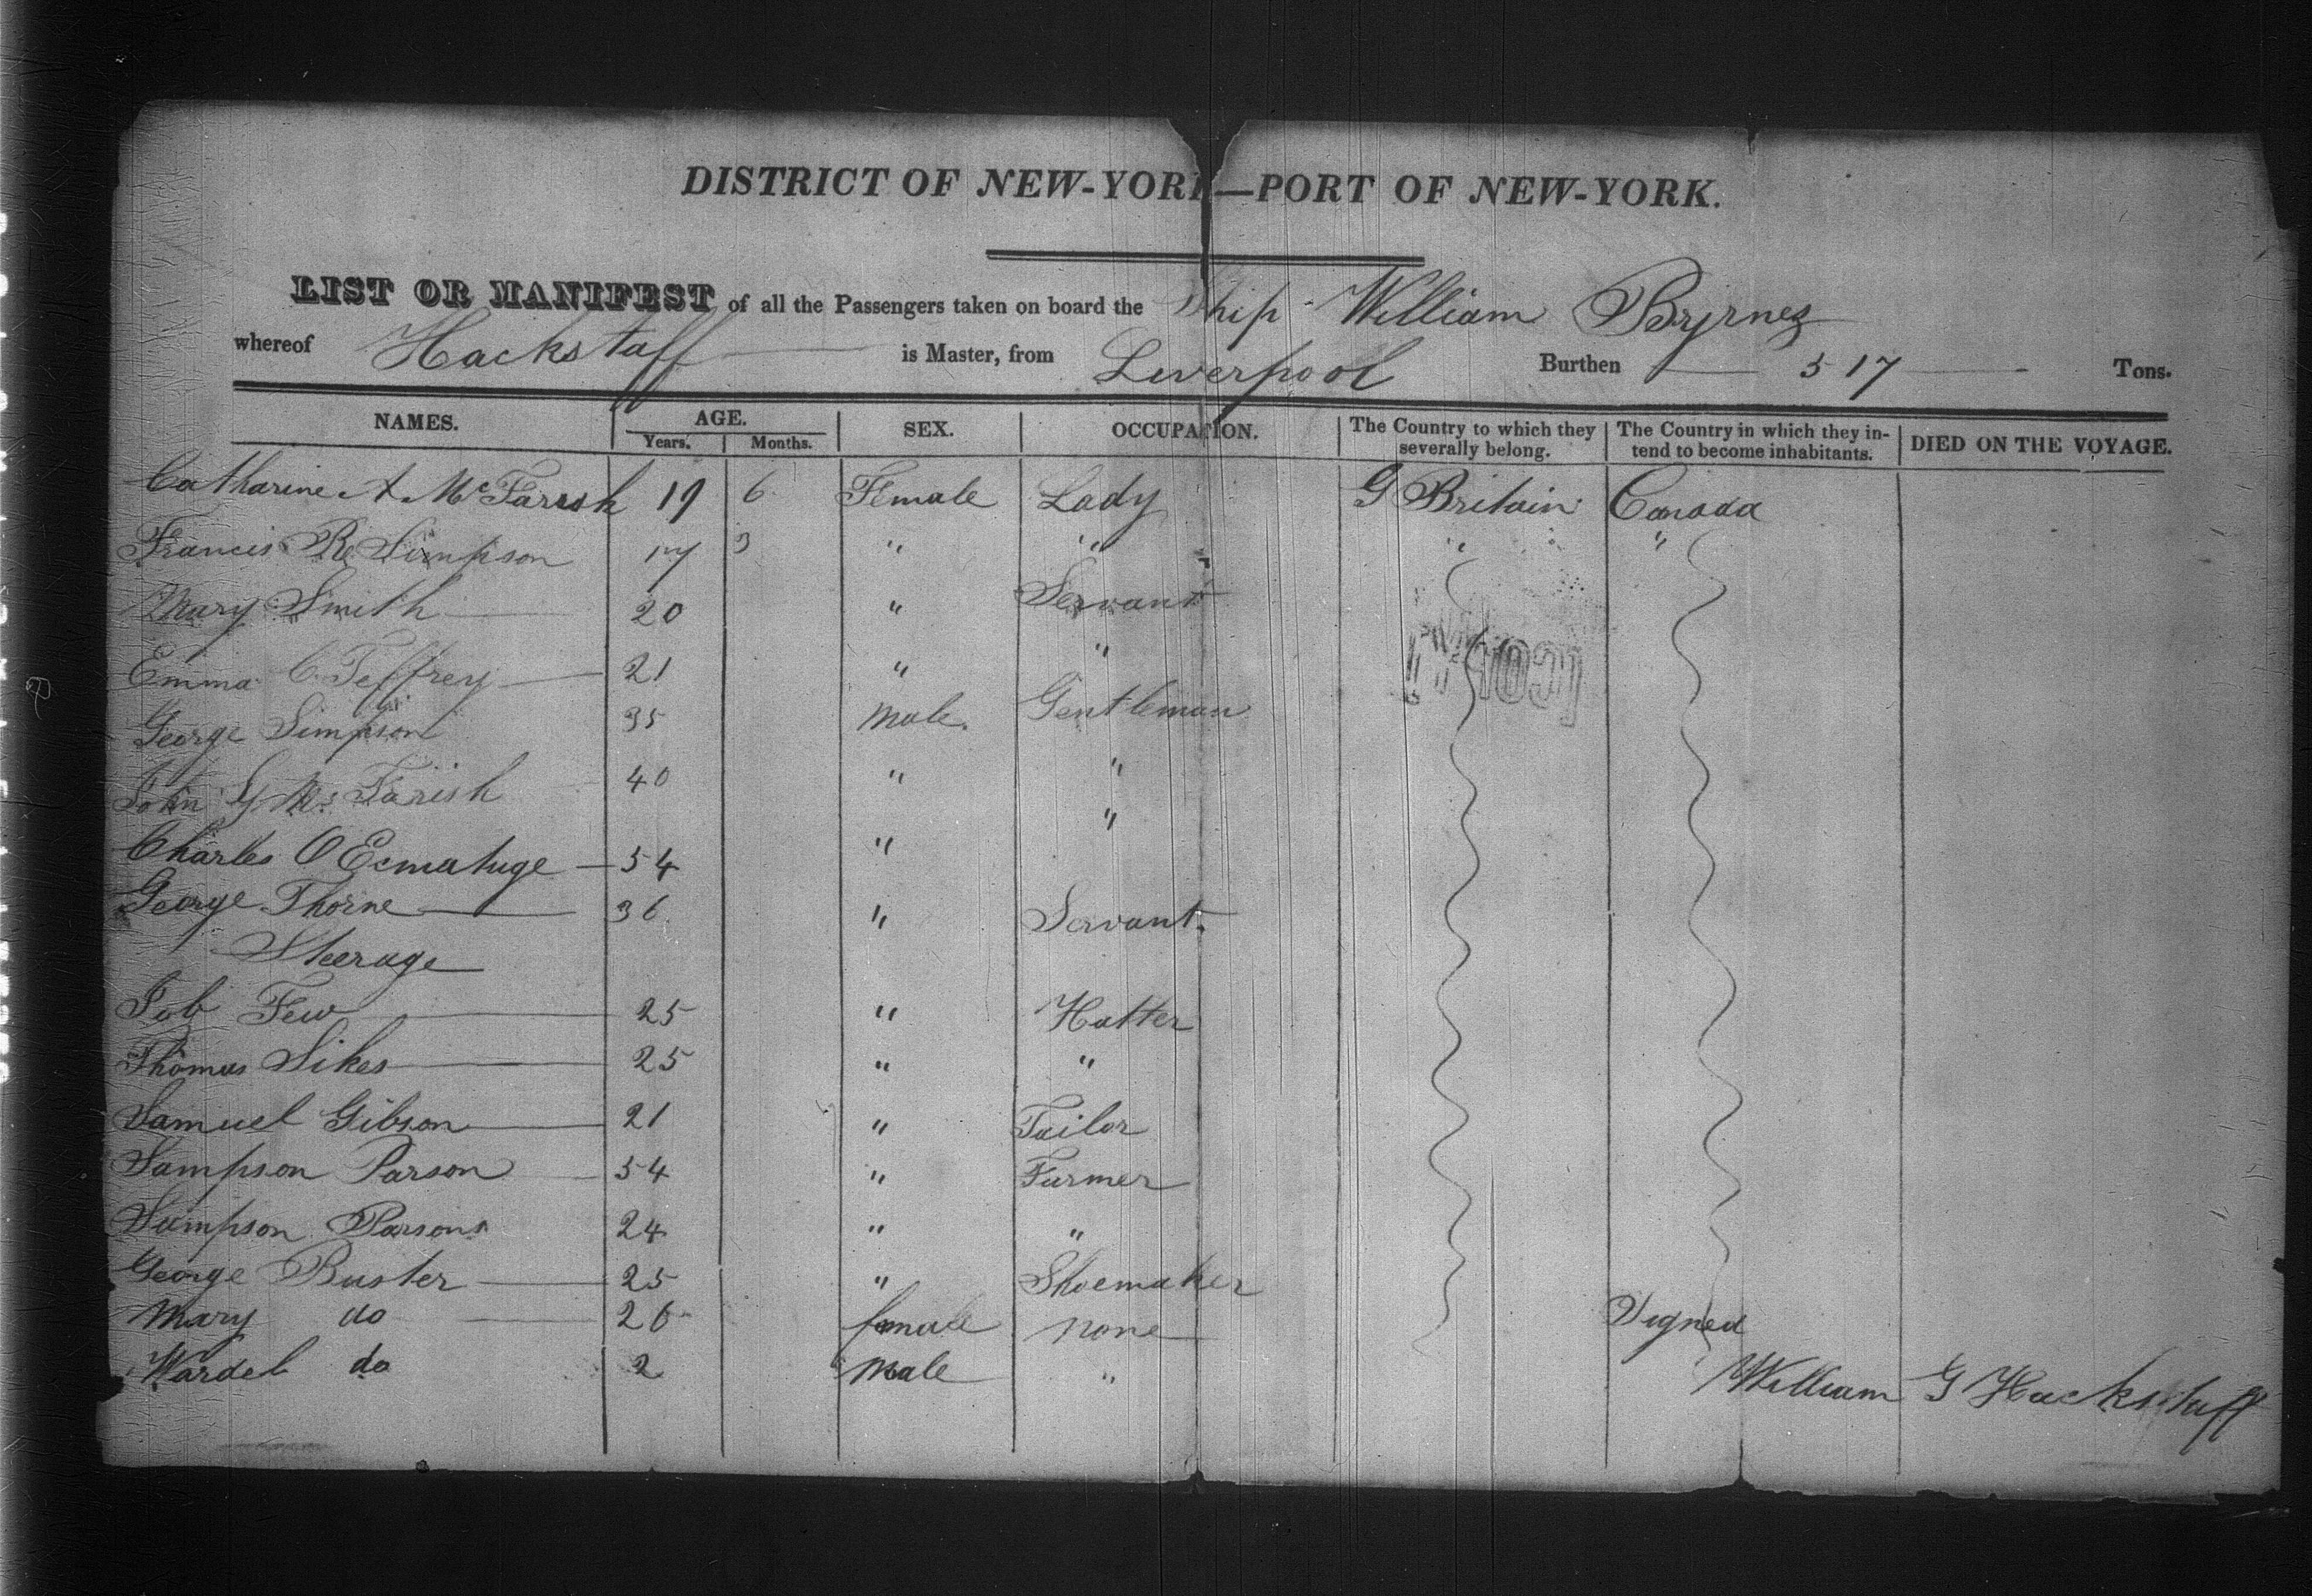 DISTRICT OF NEW-YORK—PORT OF NEW-YORK.
LIST OR MANIFEST of all the Passengers taken on board the Ship William Byrnes
whereof Hackstaff is Master, from Liverpool Burthen 517 Tons.
NAMES. AGE. SEX. OCCUPATION. The Country to which they severally belong. The Country in which they intend to become inhabitants. DIED ON THE VOYAGE.
Years. Months.
Catharine A McFarish 19 6 Female Lady G Britain Canada
Francis R Simpson 17 3 " " " "
Mary Smith 20 " Servant
Emma C Jeffrey 21 " "
George Simpson 35 Male Gentleman
John G Mc Farish 40 " "
Charles O 54 " "
George Thorne 36 " Servant
Steerage
Job Few 25 " Hatter
Thomas Sikes 25 " "
Samuel Gibson 21 " Tailor
Sampson Parson 54 " Farmer
Sampson Parsons 24 " "
George Buster 25 " Shoemaker
Mary do 26 female none
Wardel do 2 Male "
Signed
William G Hackstaff